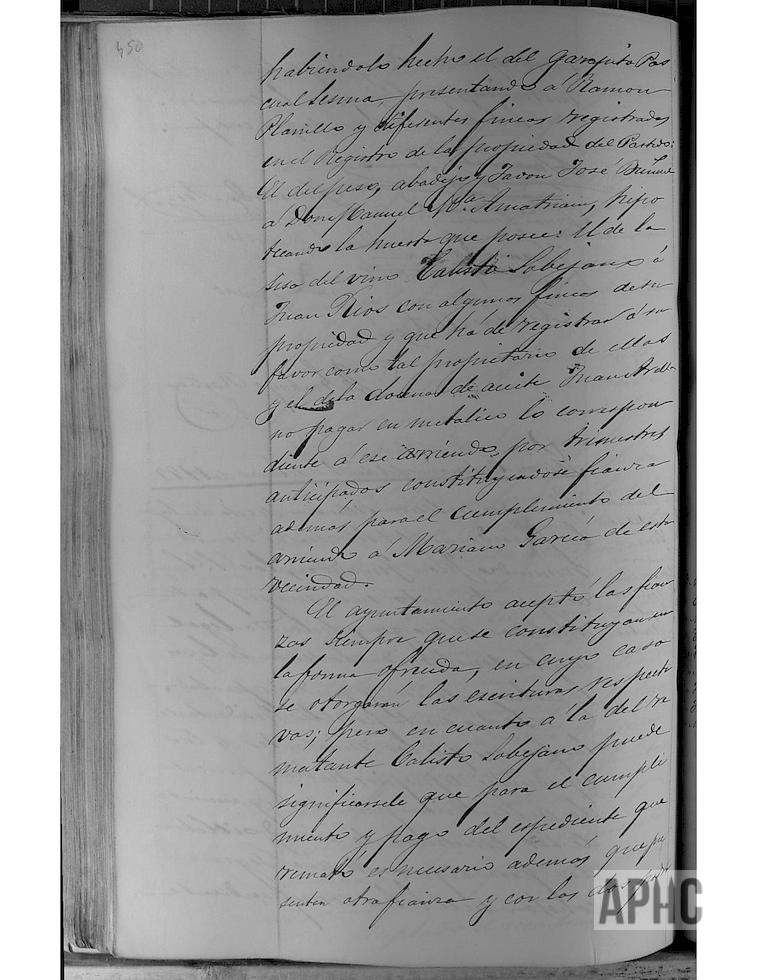 450
habiendolo hecho el del Garapito Pas
cual Lesma, presentando á Ramon
Planillo y diferentes fincas registradas
en el Registro de la propiedad del Partido:
El del peso, abadejo y Javon José
á Don Manuel Mª Amatriain, hipo
tecando la huerta que posee: El de la
sisa del vino Calisto Sobejano á
Juan Rios con algunas fincas de su
propiedad y que há de registrar á su
favor como tal propietario de ellas
y el de la docena de aceite Juan
no pagar en metalico lo correspon
diente á ese arriendo, por trimestres
anticipados constituyendose fianza
ademas para el cumplimiento del
arriendo á Mariano García de esta
vecindad.
El ayuntamiento aceptó las fian
zas siempre que se constituyan en
la forma ofrecida, en cuyo caso
se otorgarán las escrituras respecti
vas; pero en cuanto á la del re
matante Calisto Sobejano puede
significarsele que para el cumpli
miento y pago del espediente que
remató es necesario además que pre
senten otra fianza y con las dos
APHC